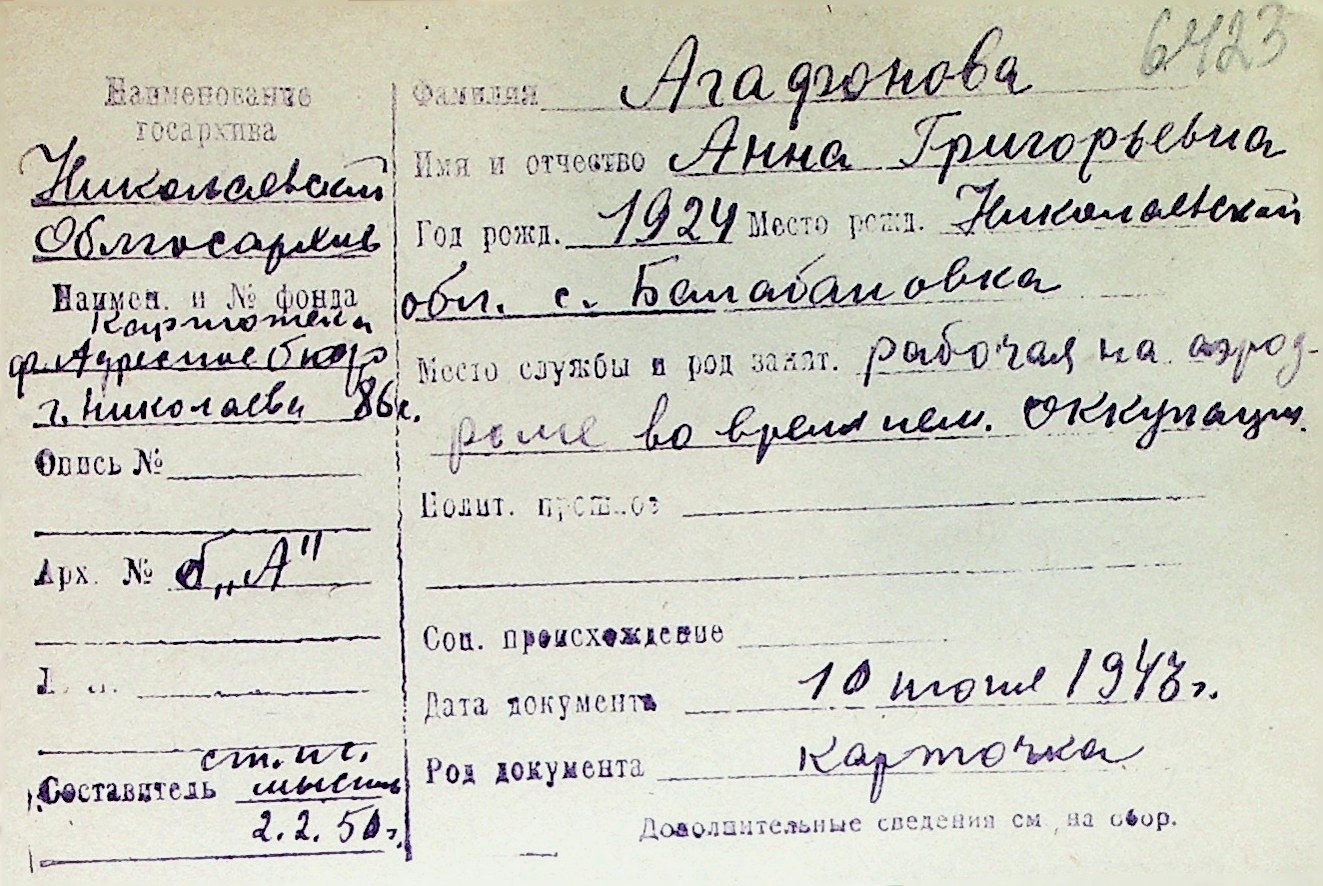 6423
Наименование
госархива
Николаевский
Облгосархив
Наимен. и № фонда
Картотека
ф. Адресное бюро
г. Николаева 86с.
Опись №
Арх. № б „А"
Л. Л.
ст. ис.
Составитель
2.2.50г.
Фамилия Агафонова
Имя и отчество Анна Григорьевна
Год рожд. 1924 Место рожд. Николаевской
обл. с. Балабановка
Место службы и род занят. рабочая на аэрод-
роме во время нем. оккупации.
Полит. прошлое
Соц. происхождение
Дата документа 10 1943г.
Род документа карточка
Дополнительные сведения см. на обор.